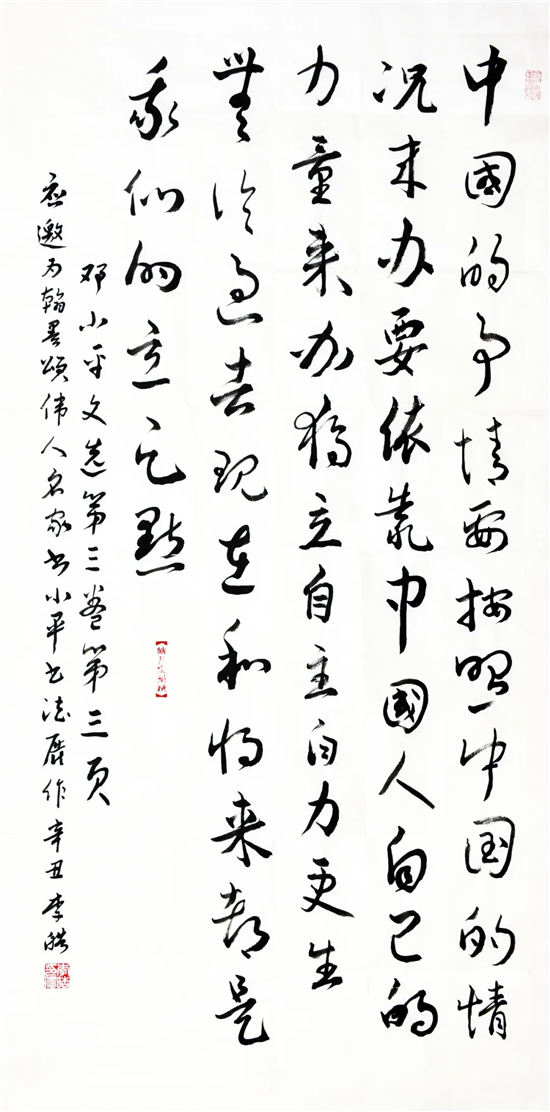 中國的事情要按照中国的情
况来办要依靠中國人自己的
力量来办獨立自主自力更生
無论過去現在和将来都是
我们的立足點
邓小平文选第三卷第三页
应邀为翰墨颂伟人名家书小平书法展作辛丑李皓